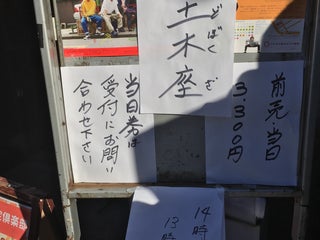 土木座
どぼくざ
前売・当日
3,300円
当日券は
受付にお問い
合わせ下さい
14時
13時
倶楽部